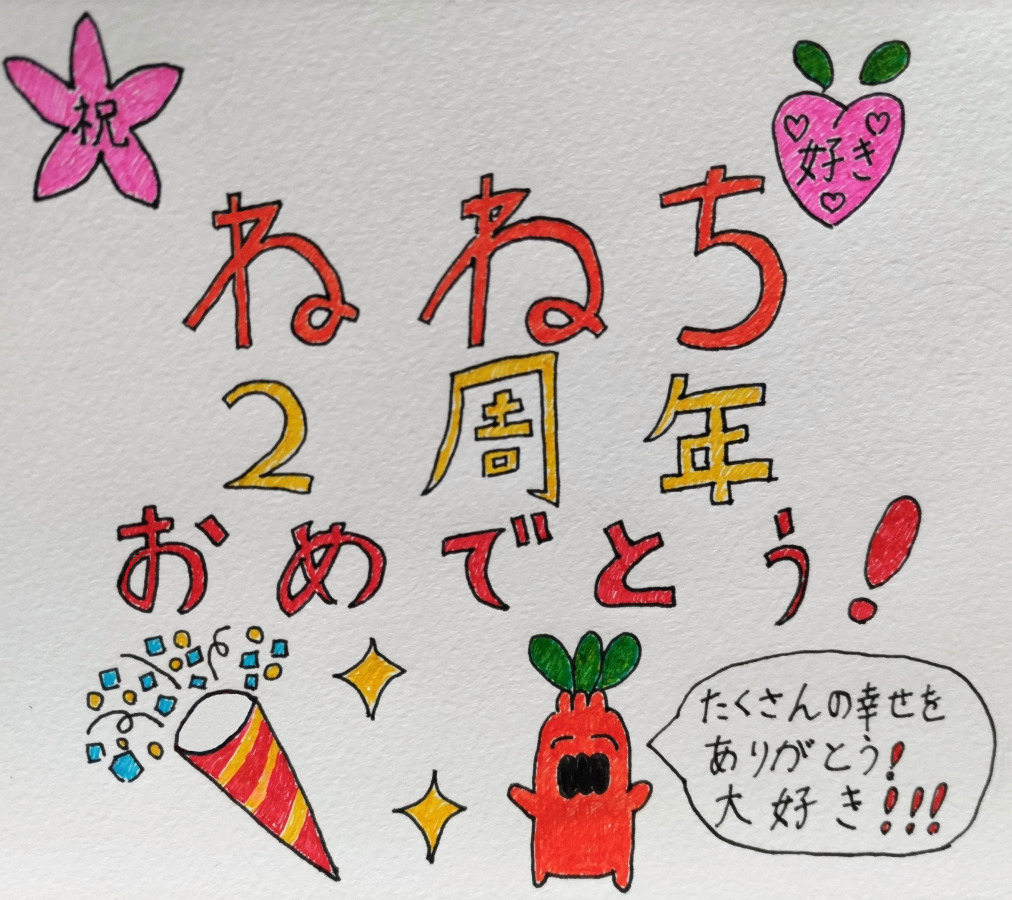 祝
好き
ねねち
2周年
おめでとう!
たくさんの幸せを
ありがとう!
大好き!!!